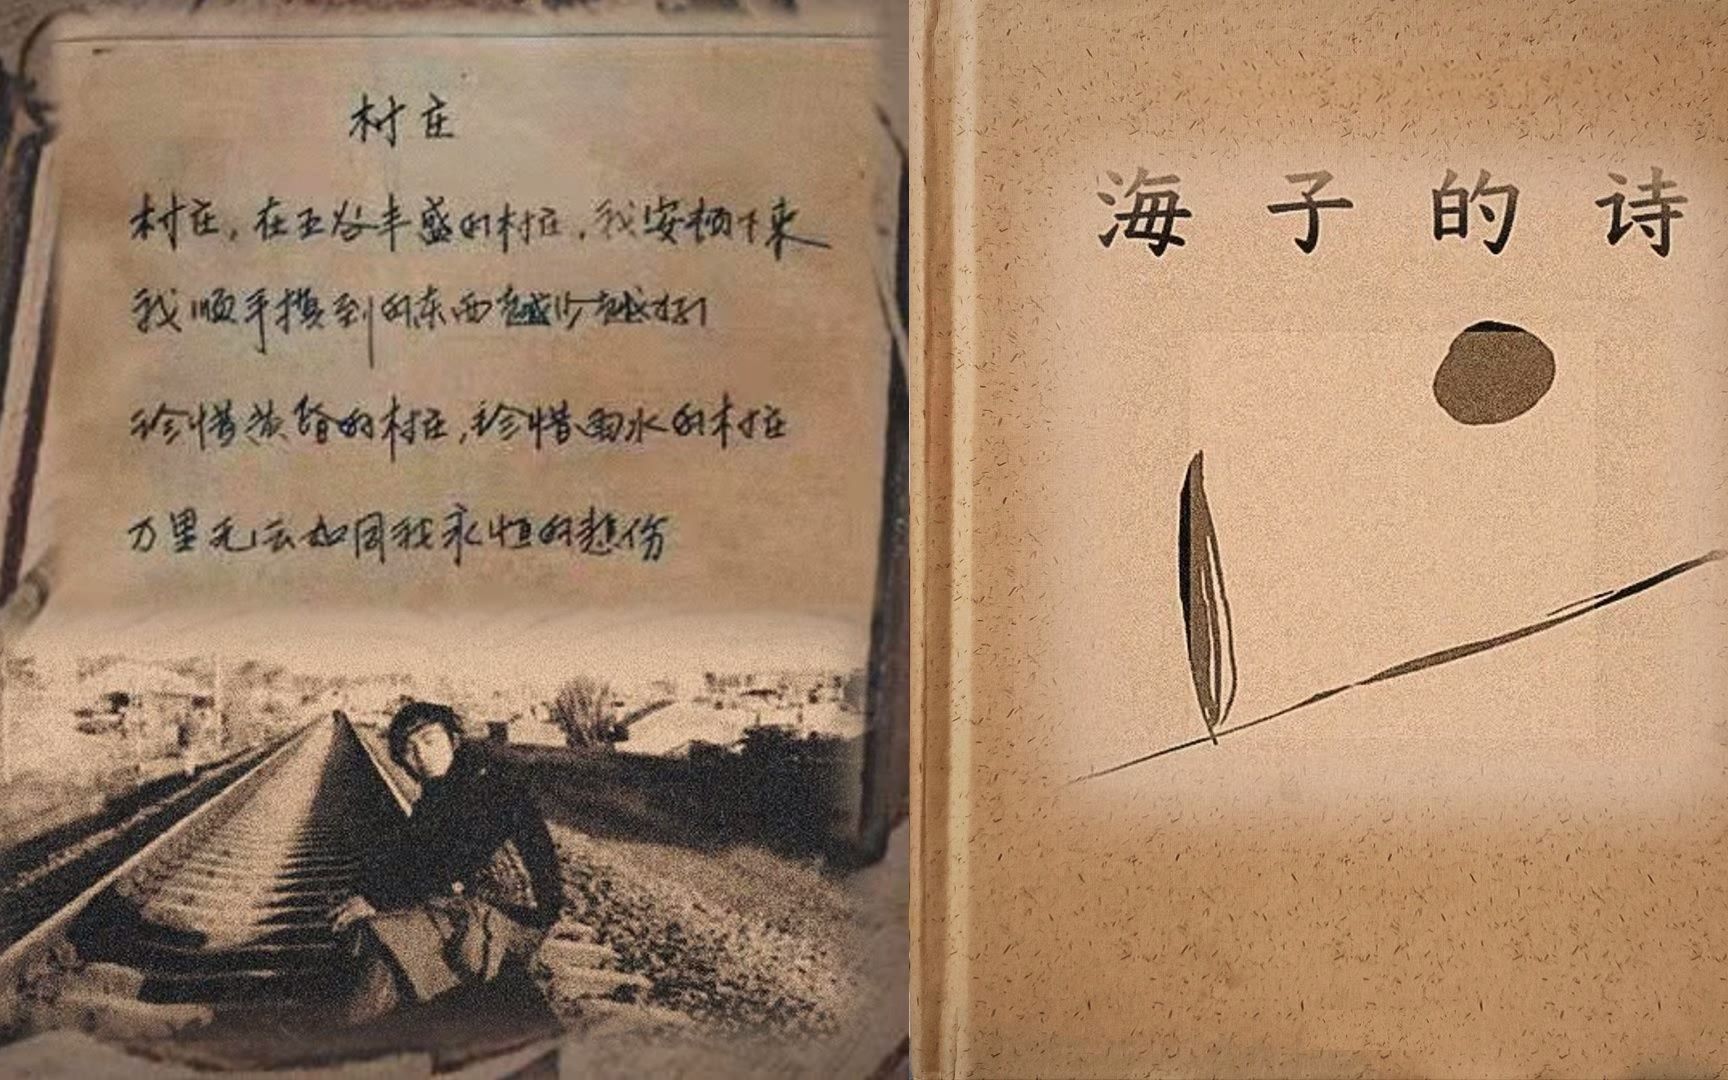 村庄
村庄，在五谷丰盛的村庄，我安顿下来
我顺手摸到的东西越少越好！
珍惜黄昏的村庄，珍惜雨水的村庄
万里无云如同我永恒的悲伤
海子的诗